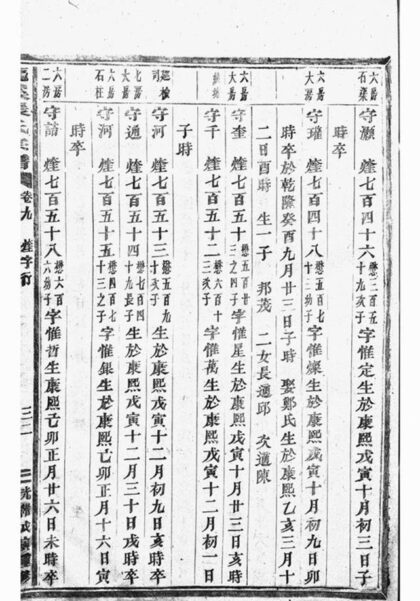 六房石柒
守灝 煃七百四十六懋三百五十九次子字惟定生於康熙戊寅十月初三日子
時卒
六房大房
守璀 煃七百四十八懋五百五十三幼子字惟燦生於康熙戊寅十月初九日卯
時卒於乾隆癸酉九月廿三日子時 娶鄭氏生於康熙乙亥三月十
二日酉時 生一子 邦茂 二女長適邱 次適陳
六房大房
守奎 煃七百五十 字惟星生於康熙戊寅十月廿三日亥時
守千 煃七百五十二懋六百十三次子字惟萬生於康熙戊寅十二月初一日
子時
巡檢司
守河 煃七百五十三懋五百九十次子生於康熙戊寅十二月初九日亥時卒
七房大房
守通 煃七百五十四懋七百四十九長子生於康熙戊寅十二月三十日戌時卒
六房石柱
守河 煃七百五十五 字惟銀生於康熙己卯正月十六日寅
時卒
六房二房
守諳 煃七百五十八懋六百十六幼子字惟哲生康熙己卯正月廿六日未時卒
卷九 煃字行
三二